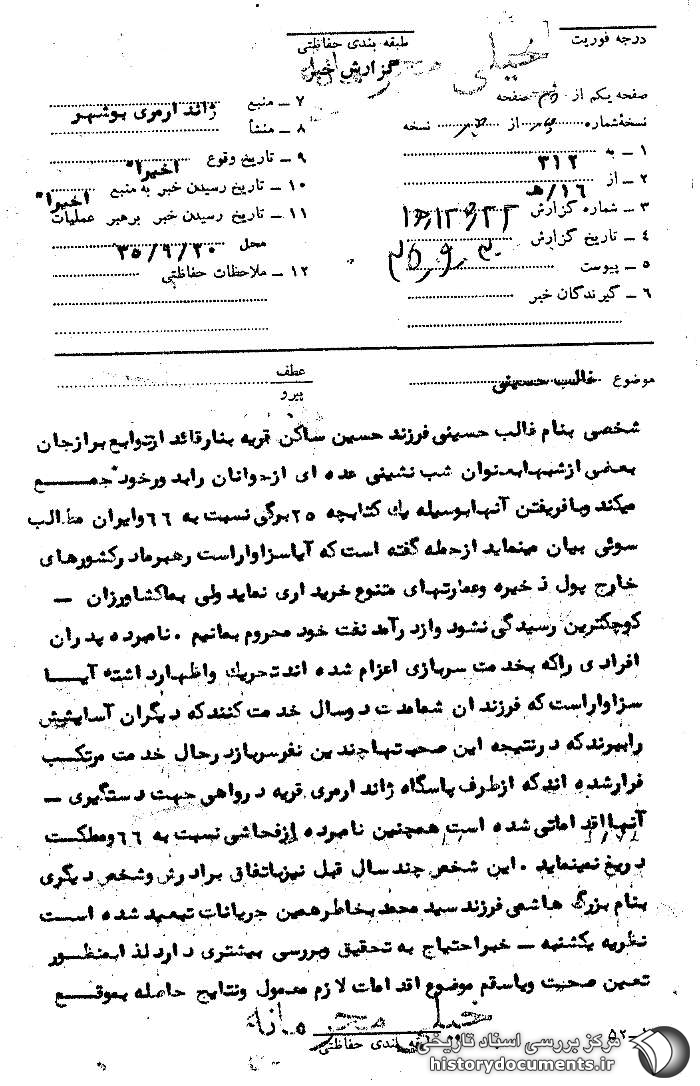 درجه فوریت
طبقه بندی حفاظتی
خیلی محرمانه
گزارش خبر
صفحه یکم از دو صفحه
نسخه شماره از نسخه
۱ – به ۳۱۲
۲ – از ۱۶/هـ
۳ – شماره گزارش
۴ – تاریخ گزارش ۳۵٫۹٫۳۰
۵ – پیوست
۶ – گیرندگان خبر
۷ – منبع ژاندارمری بوشهر
۸ – منشأ
۹ – تاریخ وقوع اخیرا"
۱۰ – تاریخ رسیدن خبر به منبع اخیرا"
۱۱ – تاریخ رسیدن خبر برهبر عملیات
محل ۳۵/۹/۲۰
۱۲ – ملاحظات حفاظتی
موضوع غالب حسینی
عطف
پیرو
شخصی بنام غالب حسینی فرزند حسین ساکن قریه بنارقائد ازتوابع برازجان
بعضی ازشبهابعنوان شب نشینی عده ای ازجوانان رابدورخود جمع
میکند وبافریفتن آنهابوسیله یك کتابچه ۲۵برگی نسبت به ۶۶وایران مطالب
سوئی بیان مینماید ازجمله گفته است که آیاسزاواراست رهبرماد رکشورهای
خارج پول ذخیره وعمارتهای متنوع خریداری نماید ولی بماکشاورزان –
کوچکترین رسیدگی نشود وازد رآمد نفت خود محروم بمانیم . نامبرده پدران
افرادی راکه بخدمت سربازی اعزام شده اند تحریك واظهارد اشته آیا
سزاواراست که فرزندان شماعدت دوسال خدمت کنند که دیگران آسایشش
راببرند که درنتیجه این صحبتهاچندین نفرسربازدرحال خدمت مرتکب
فرارشده اند که ازطرف پاسگاه ژاندارمری قریه درواهی جهت دستگیری –
آنهااقداماتی شده است همچنین نامبرده ازفحاشی نسبت به ۶۶ومملکت
دریغ نمینماید . این شخص چند سال قبل نیزباتفاق برادرش وشخص دیگری
بنام بزرگ هاشمی فرزند سید محمد بخاطرهمین جریانات تبعید شده است
نظریه یکشنبه – خبراحتیاج به تحقیق وبررسی بیشتری دارد لذا بمنظور
تعیین صحت ویاسقم موضوع اقدامات لازم معمول ونتایج حاصله بموقع
خیلی محرمانه
طبقه بندی حفاظتی
۵۲
مرکز بررسی اسناد تاریخی
historydocuments.ir